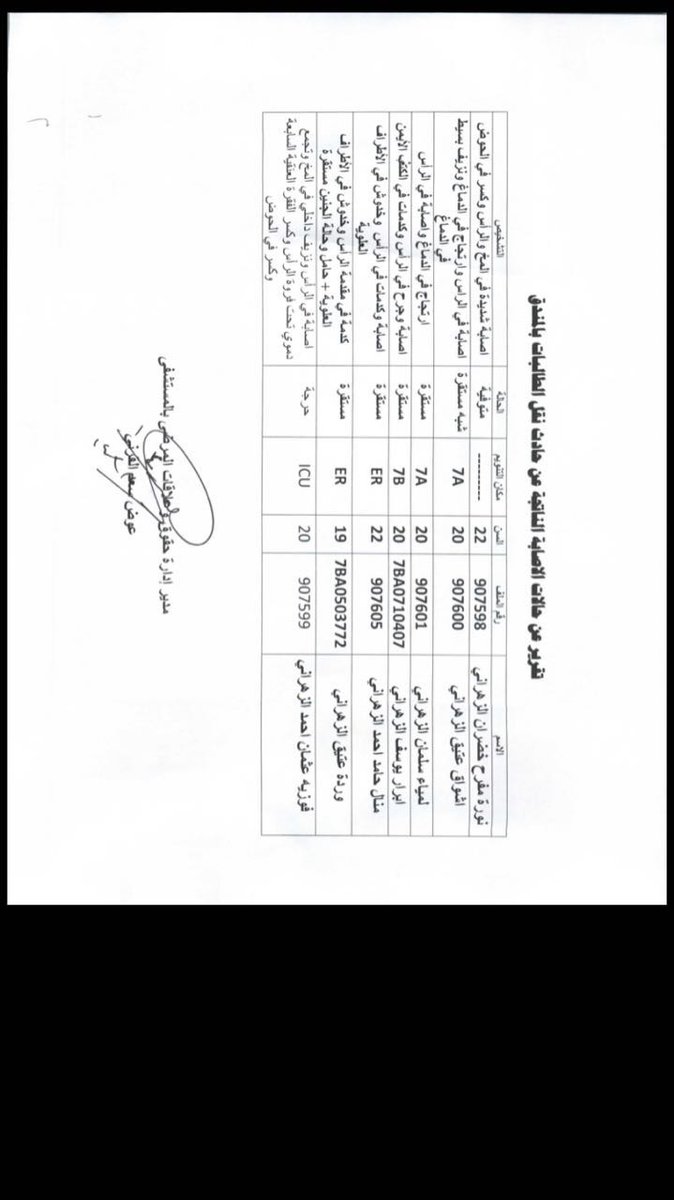 تقرير عن حالات الاصابة الناتجة عن حادث نقل الطالبات بالمندق
الاسم رقم الملف السن مكان التنويم الحالة التشخيص
نورة مفرح خضران الزهراني 907598 22 --------- متوفية اصابة شديدة في المخ والرأس وكسر في الحوض
اشواق عتيق الزهراني 907600 20 7A شبه مستقرة اصابة في الراس وارتجاج في الدماغ ونزيف بسيط
في الدماغ
لمياء سلمان الزهراني 907601 20 7A مستقرة ارتجاج في الدماغ واصابة في الرأس
ابرار يوسف الزهراني 7BA0710407 20 7B مستقرة اصابة وجرح في الرأس وكدمات في الكتف الأيمن
منال حامد احمد الزهراني 907605 22 ER مستقرة اصابة وكدمات في الرأس وخدوش في الأطراف
العلوية
وردة عتيق الزهراني 7BA0503772 19 ER مستقرة كدمة في مقدمة الراس وخدوش في الأطراف
العلوية + حامل وحالة الجنين مستقرة
فوزيه عثمان احمد الزهراني 907599 20 ICU حرجة اصابة في الرأس ونزيف داخلي في المخ وتجمع
دموي تحت فروة الرأس وكسر الفقرة العنقية السابعة
وكسر في الحوض
مدير إدارة حقوق وعلاقات المرضى بالمستشفى
عوض سعم القرني